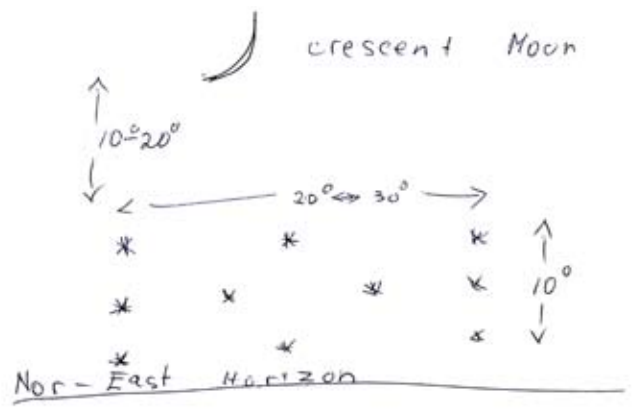 crescent Moon
10°-20°
20° ↔ 30°
10°
Nor-East Horizon